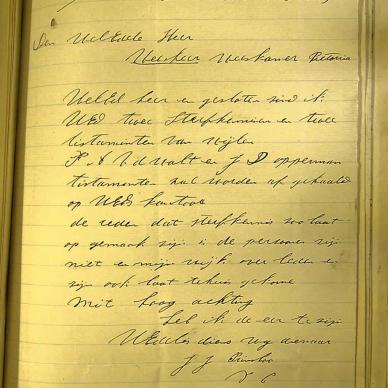 Den UelEdele Heer
Weesheer Weeskamer Pretoria
UelEd heer en gesloten sind ik
UED twee Sterfkennis en twee
tistamenten van wijlen
en J D opperman
tistamenten zal worden af gehaald
op UEDs kantoor
de reden dat sterfkennis soo laat
op gemaak zijn is de persone zijn
niet en mijn wijk over leden en
zijn ook laat tehuis gekome
Met hoog achting
Heb ik de eer te zijn
UEdeles diens wg dienaar
J J Prinsloo